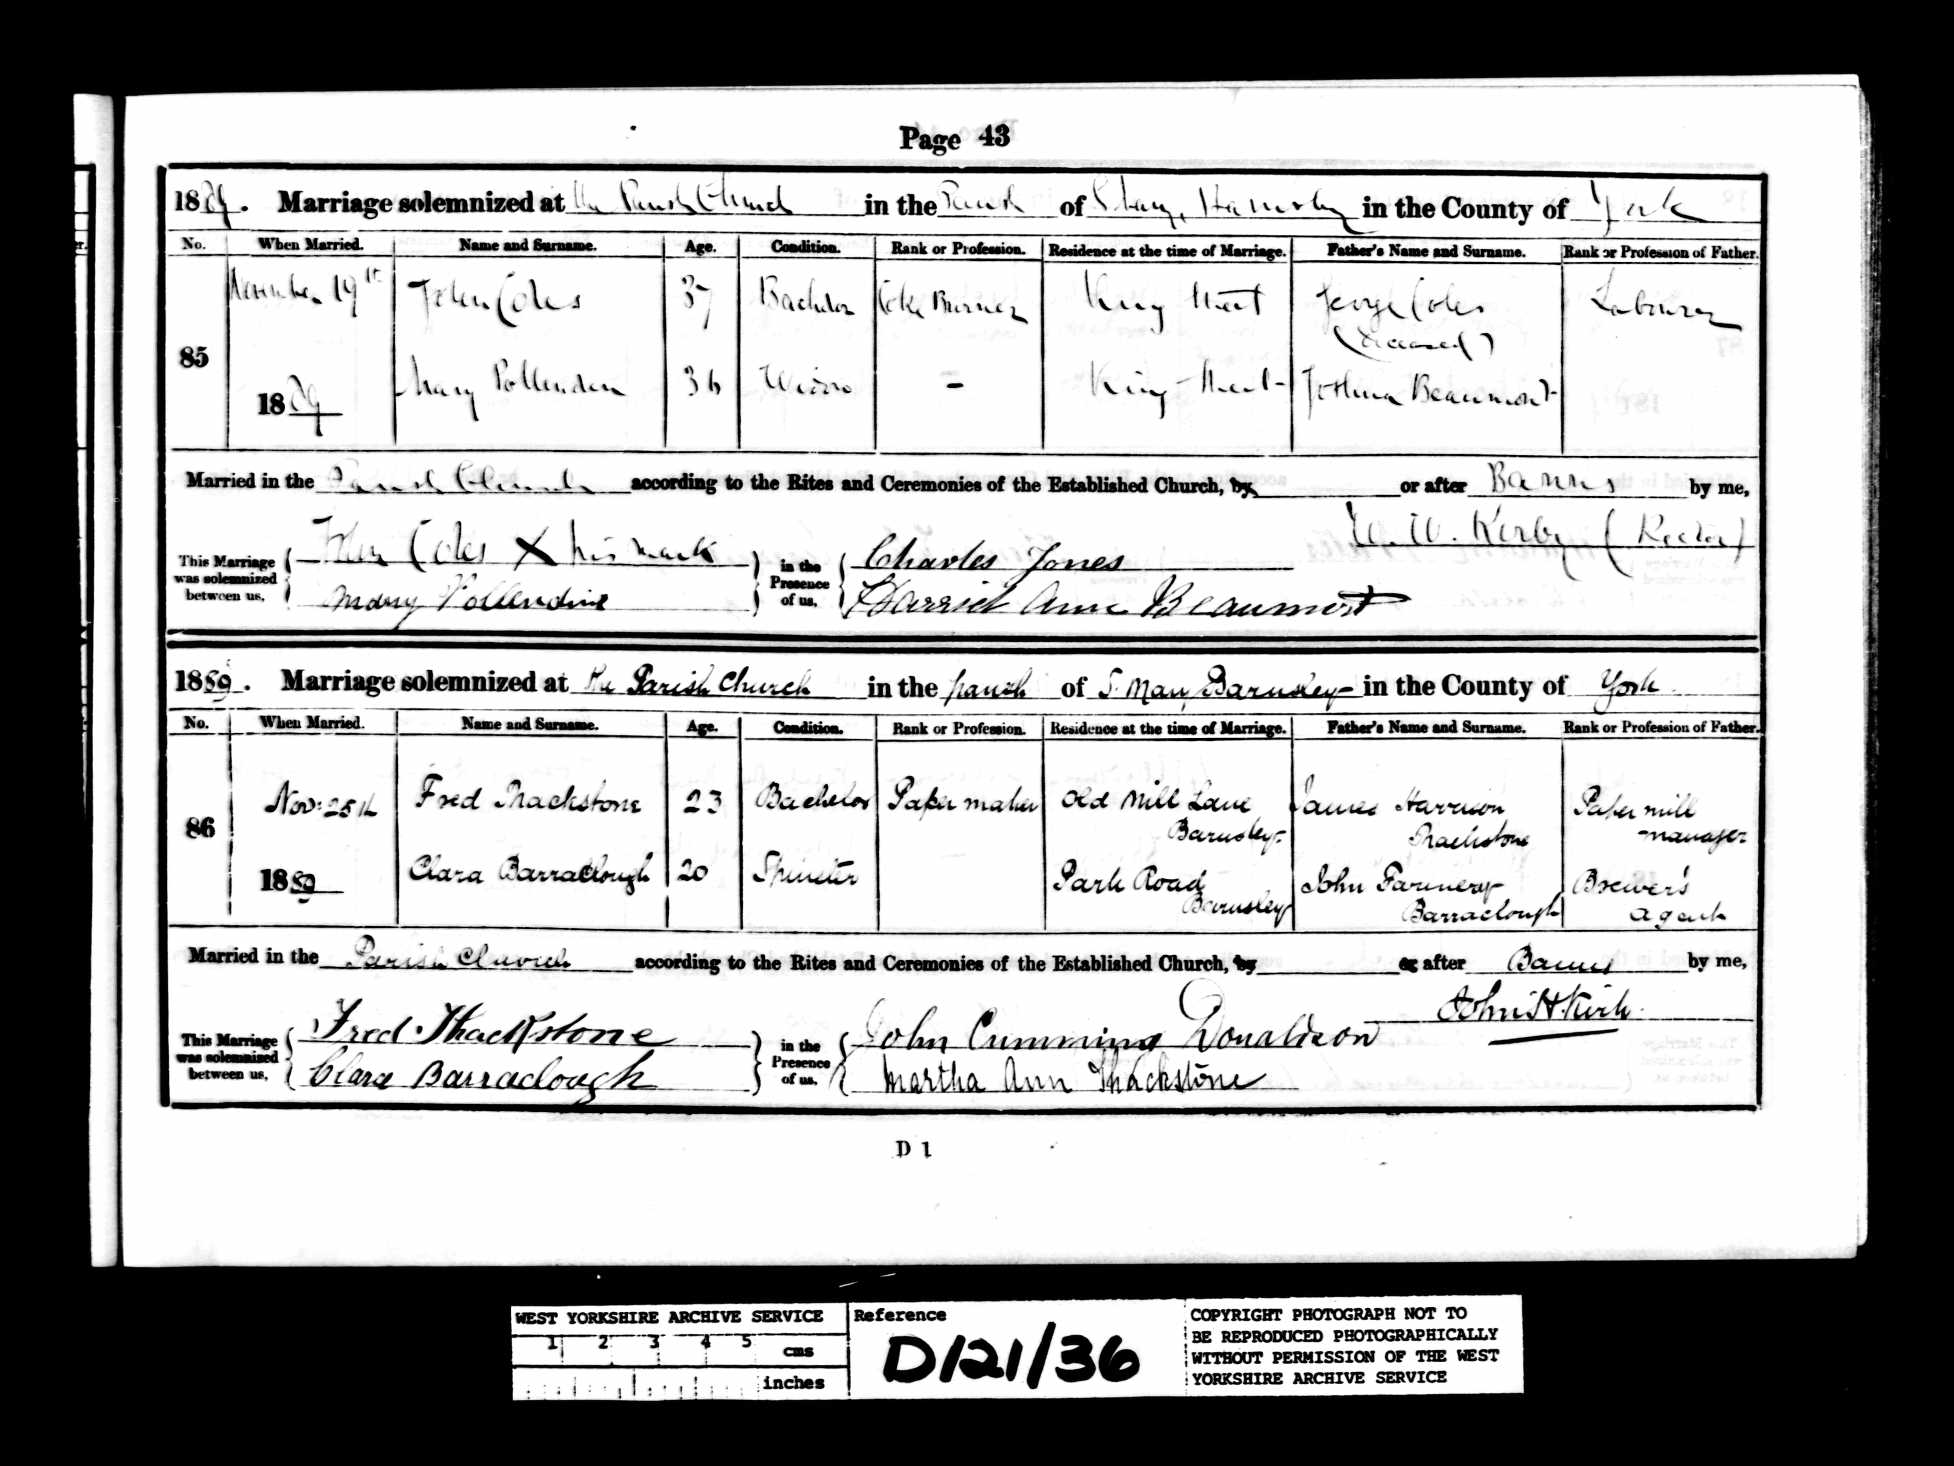 Page 43
1889. Marriage solemnized at the Parish Church in the Parish of S. Mary, Barnsley in the County of York
No. When Married. Name and Surname. Age. Condition. Rank or Profession. Residence at the time of Marriage. Father's Name and Surname. Rank or Profession of Father.
November 19th John Coles 37 Bachelor Coke Burner King Street George Coles Labourer
(deceased)
85
Mary Pollenden 36 Widow - King Street Joshua Beaumont
1889
Married in the Parish Church according to the Rites and Ceremonies of the Established Church, by or after Banns by me,
John Coles X his mark (Rector)
This Marriage was solemnized between us,
in the Presence of us,
Charles Jones
Mary Pollendine
Harriet Ann Beaumont
1889. Marriage solemnized at the Parish Church in the parish of S. Mary, Barnsley in the County of York
No. When Married. Name and Surname. Age. Condition. Rank or Profession. Residence at the time of Marriage. Father's Name and Surname. Rank or Profession of Father.
Nov: 25th Fred Thackstone 23 Bachelor Paper maker Old Mill Lane James Harrison Paper mill
Barnsley Thackstone manager
86
1889 Clara Barraclough 20 Spinster Park Road John Barraclough Brewer's
Barnsley agent
Married in the Parish Church according to the Rites and Ceremonies of the Established Church, by or after Banns by me,
John H. Kirk.
This Marriage was solemnized between us,
Fred Thackstone
in the Presence of us,
John Cumming Donaldson
Clara Barraclough
Martha Ann Thackstone
D 1
WEST YORKSHIRE ARCHIVE SERVICE
1 2 3 4 5 cms
inches
Reference
D121/36
COPYRIGHT PHOTOGRAPH NOT TO
BE REPRODUCED PHOTOGRAPHICALLY
WITHOUT PERMISSION OF THE WEST
YORKSHIRE ARCHIVE SERVICE